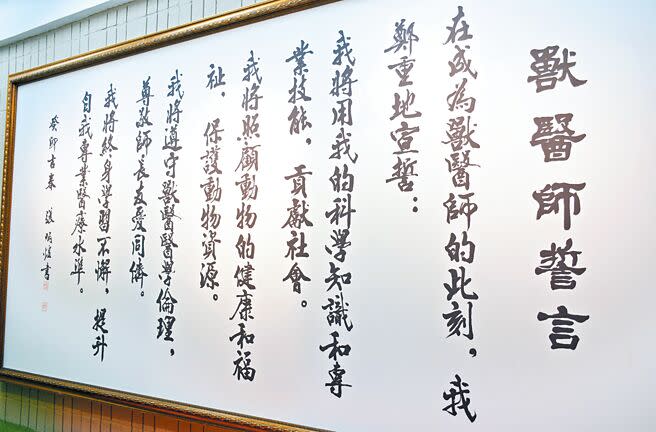 獸醫師誓言
在成為獸醫師的此刻,我
鄭重地宣誓:
我將用我的科學知識和專
業技能,貢獻社會。
我將照顧動物的健康和福
祉,保護動物資源。
我將遵守獸醫醫學倫理,
尊敬師長友愛同儕。
我將終身學習不懈,提升
自我專業醫療水準。
癸卯吉春 張炳煌書